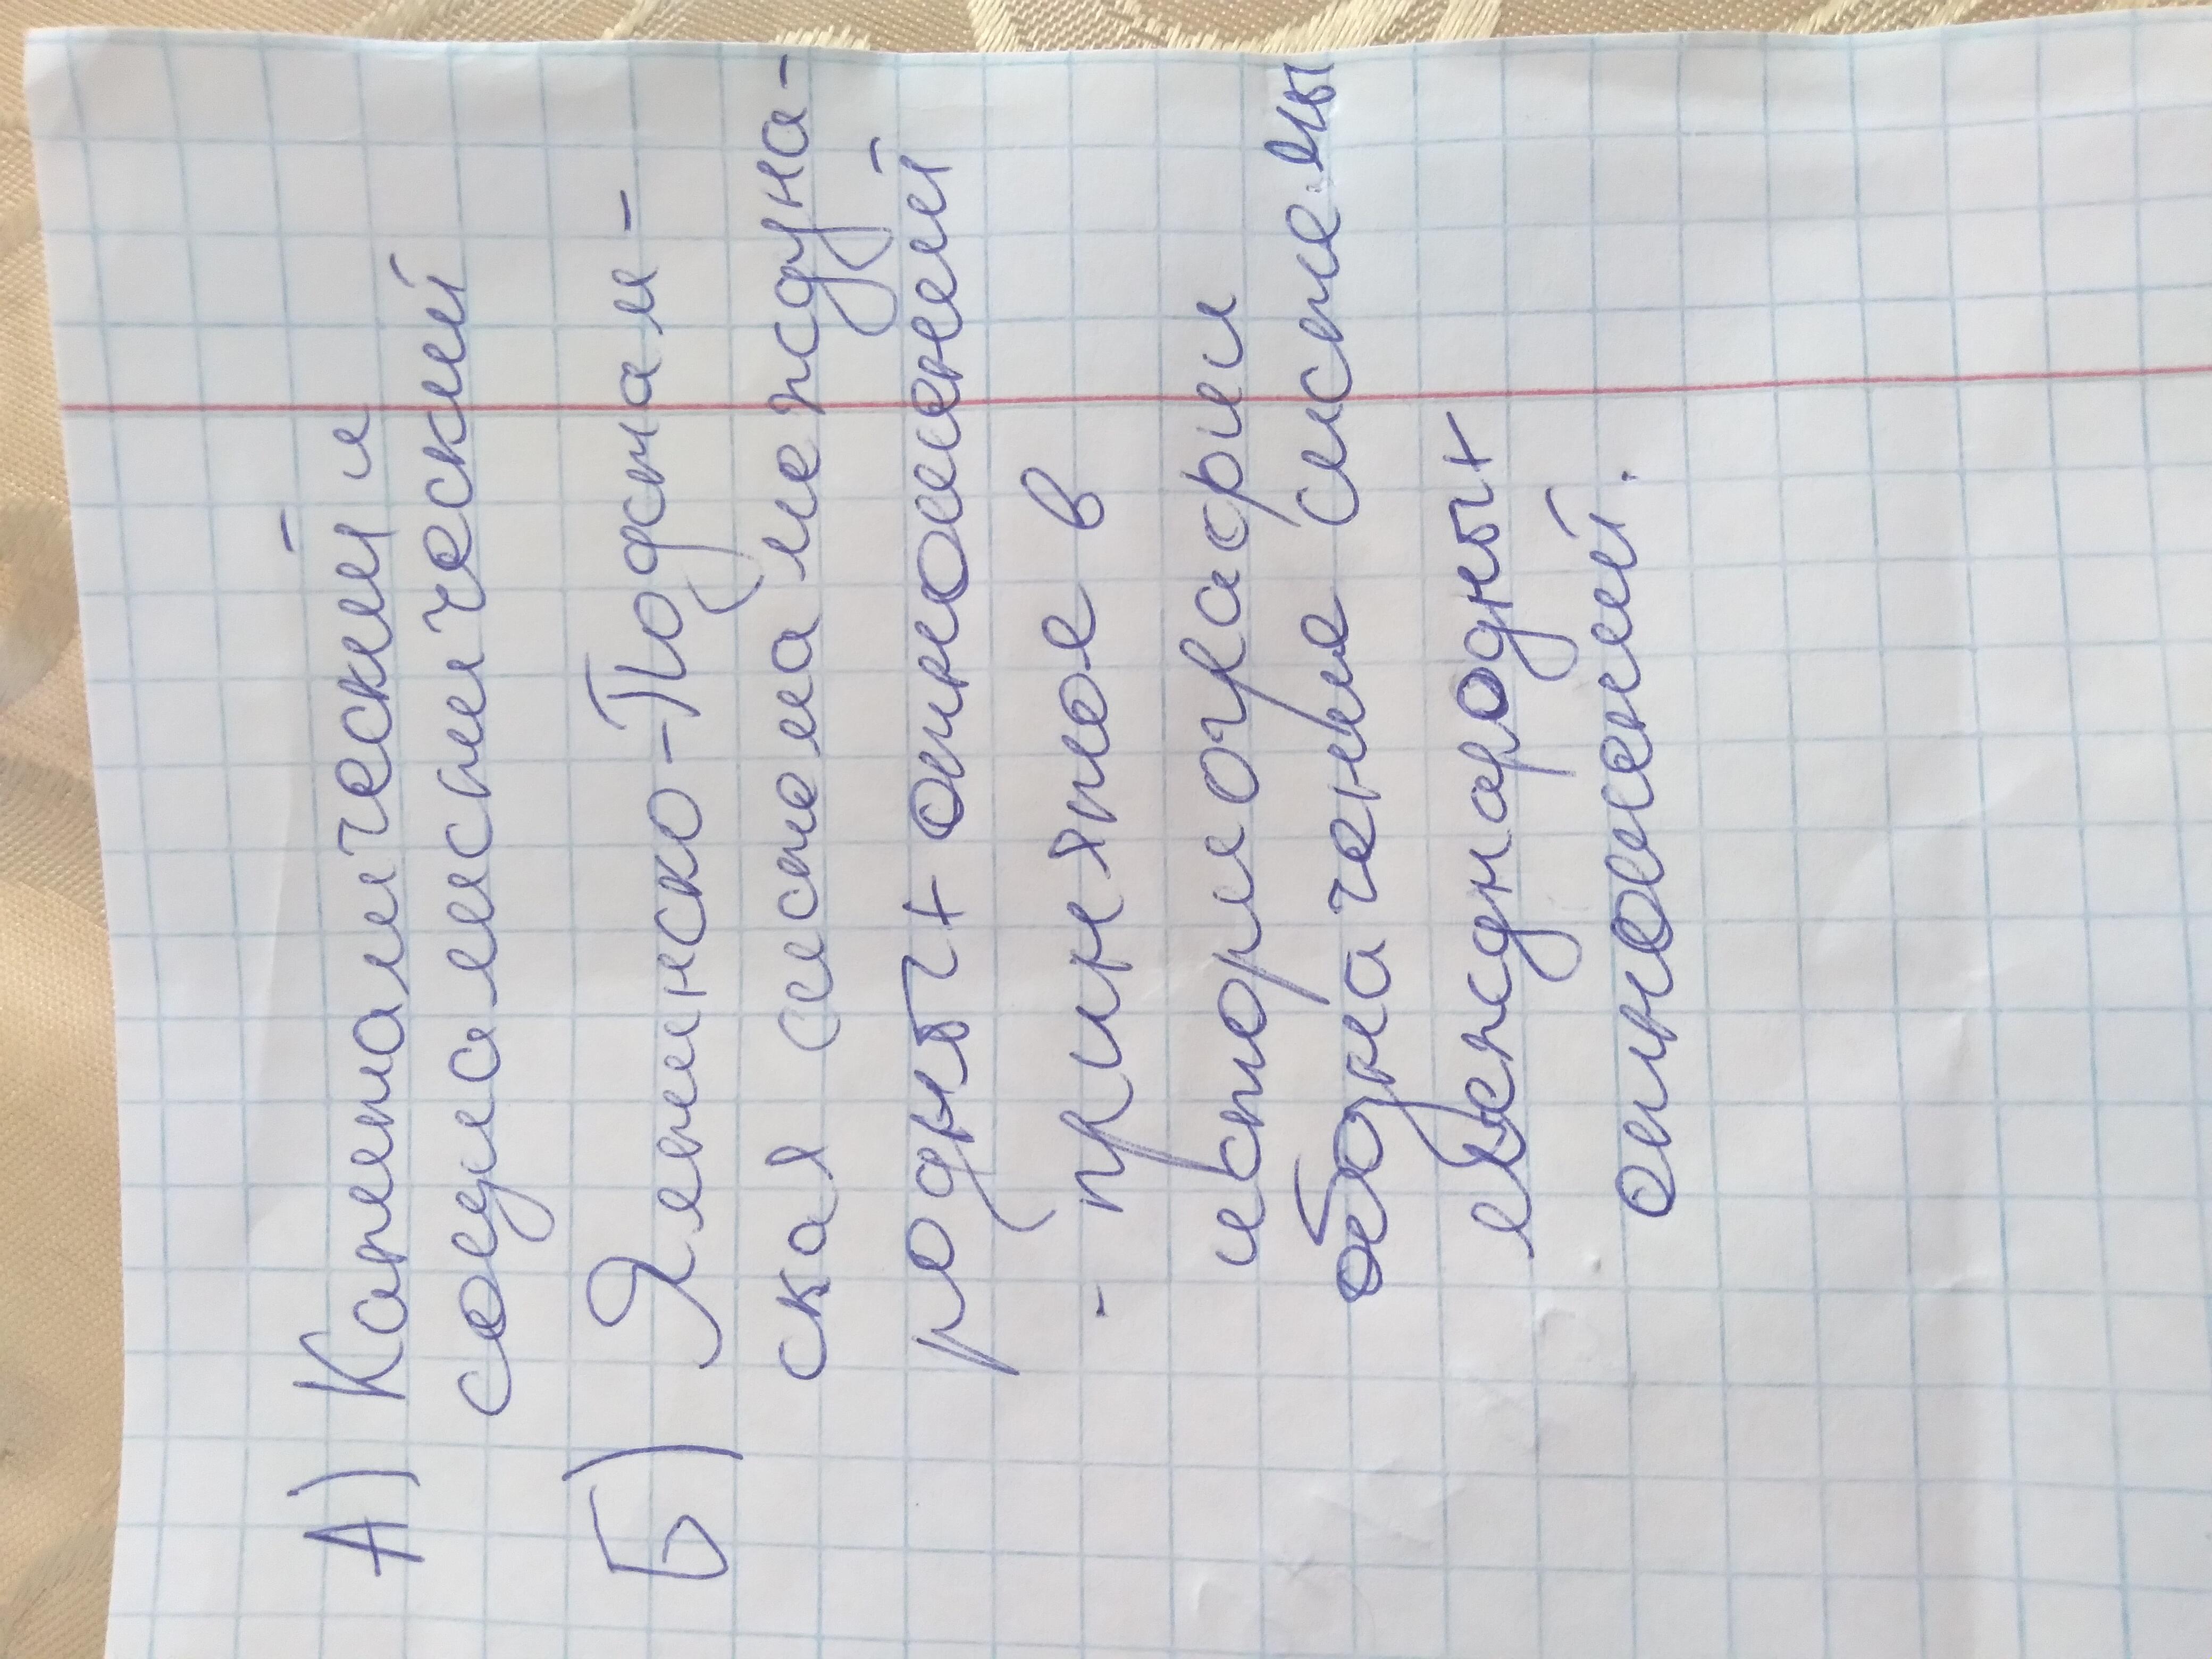 А) Капиталический и
социалистический
Б) Ялтинско-Подстам-
ская система междуна-
родных отношений
- принятое в
историографии
обозначение системы
международных
отношений.